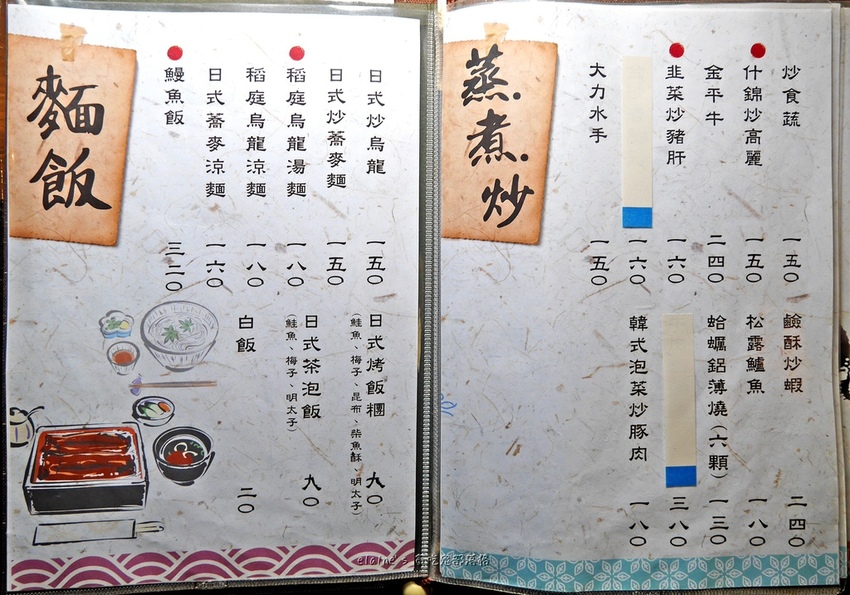 麵飯
日式炒烏龍 一五〇
日式炒蕎麥麵 一五〇
稻庭烏龍湯麵 一八〇
稻庭烏龍涼麵 一八〇
日式蕎麥涼麵 一六〇
鰻魚飯 三二〇
日式烤飯糰 九〇
(鮭魚、梅子、昆布、柴魚酥、明太子)
日式茶泡飯 九〇
(鮭魚、梅子、明太子)
白飯 二〇
蒸.煮.炒
炒食蔬 一五〇
什錦炒高麗 一五〇
金平牛 二四〇
韭菜炒豬肝 一六〇
一六〇
大力水手 一五〇
鹼酥炒蝦 二四〇
松露鱸魚 一八〇
蛤蠣鋁薄燒(六顆) 一三〇
三八〇
韓式泡菜炒豚肉 一八〇